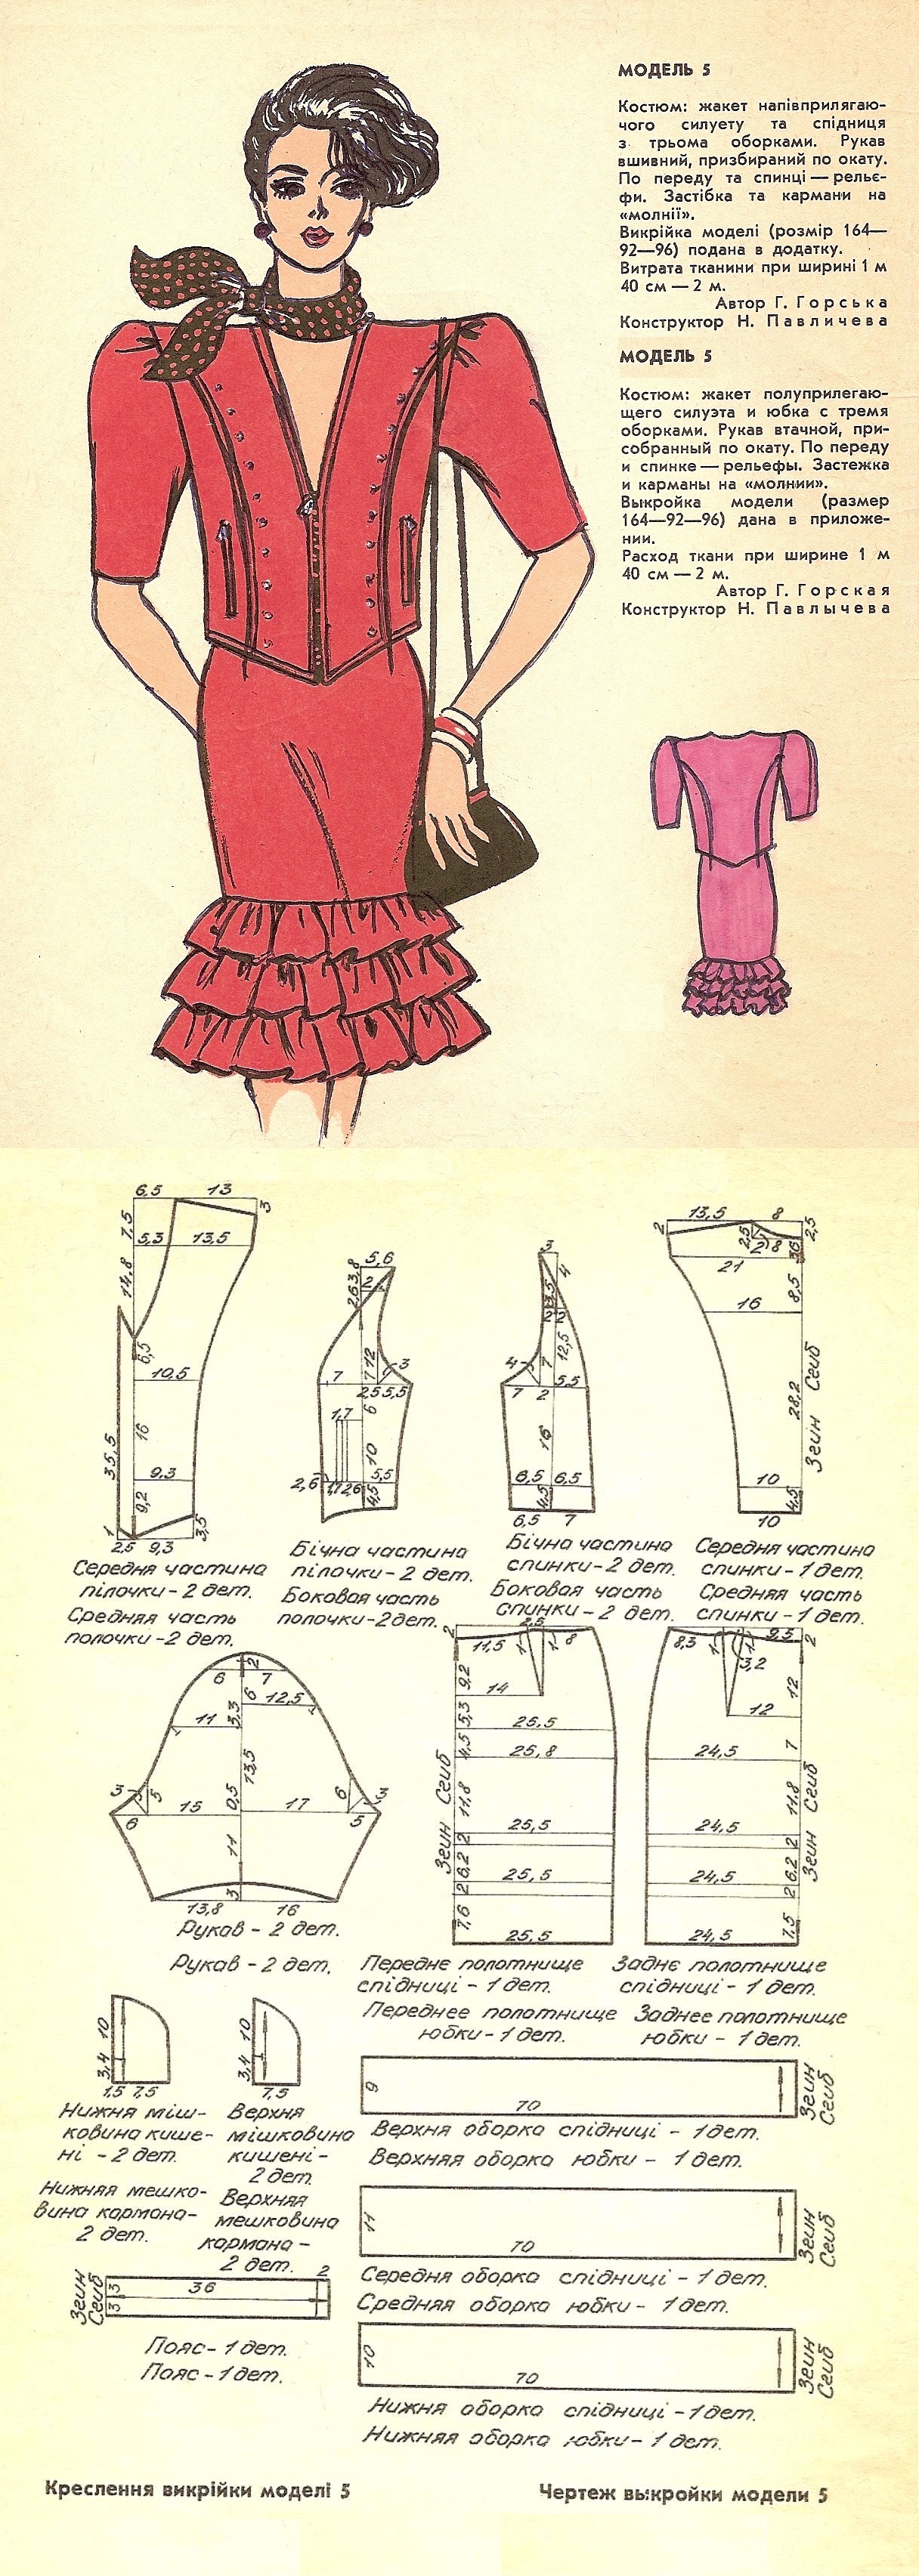 МОДЕЛЬ 5
Костюм: жакет напівприлягаю-
чого силуету та спідниця
з трьома оборками. Рукав
вшивний, призбираний по окату.
По переду та спинці — рельє-
фи. Застібка та кармани на
«молнії».
Викрійка моделі (розмір 164—
92—96) подана в додатку.
Витрата тканини при ширині 1 м
40 см — 2 м.
Автор Г. Горська
Конструктор Н. Павличева
МОДЕЛЬ 5
Костюм: жакет полуприлегаю-
щего силуэта и юбка с тремя
оборками. Рукав втачной, при-
собранный по окату. По переду
и спинке — рельефы. Застежка
и карманы на «молнии».
Выкройка модели (размер
164—92—96) дана в приложе-
нии.
Расход ткани при ширине 1 м
40 см — 2 м.
Автор Г. Горская
Конструктор Н. Павлычева
6,5 13 3
7,5 5,3 13,5
14,8
6,5
10,5
35,5 16
9,3
9,2
1 2,5 9,3 3,5
Середня частина
пілочки - 2 дет.
Средняя часть
полочки - 2 дет.
5,6
3,8 2
2,6
12 3
7 7 2,5 5,5
6
1,7
10
2,6 1,7 2,6 5,5
4,5
Бічна частина
пілочки - 2 дет.
Боковая часть
полочки - 2 дет.
3
4
3,5
2 2
12,5
4 7
7 2 5,5
16
6,5 6,5
4,5
6,5 7
Бічна частина
спинки - 2 дет.
Боковая часть
спинки - 2 дет.
13,5 8
2 2,5 2,5
2 8 3,6
21
8,5
16
28,2
Згин Сгиб
10
4,5
10
Середня частина
спинки - 1 дет.
Средняя часть
спинки - 1 дет.
2
6 7
6 12,5
11 3,3
13,5
3 5 6 3
6 15 0,5 17 5
11
3
13,8 16
Рукав - 2 дет.
Рукав - 2 дет.
2,5
2 11,5 1 1 8
9,2
14
5,3
25,5
4,5
25,8
11,8
Згин Сгиб
25,5
2
6,2
25,5
2
7,6
25,5
Переднє полотнище
спідниці - 1 дет.
Переднее полотнище
юбки - 1 дет.
9,5
8,3 1 1 2
3,2
12
12
7
24,5
11,8
Згин Сгиб
24,5
2
6,2
24,5
2
7,5
24,5
Заднє полотнище
спідниці - 1 дет.
Заднее полотнище
юбки - 1 дет.
10
3,4
1,5 7,5
Нижня міш-
ковина кише-
ні - 2 дет.
Нижняя мешко-
вина кармана -
2 дет.
10
3,4
7,5
Верхня
мішковина
кишені -
2 дет.
Верхняя
мешковина
кармана -
2 дет.
9
70
Згин
Сгиб
Верхня оборка спідниці - 1 дет.
Верхняя оборка юбки - 1 дет.
11
70
Згин
Сгиб
Середня оборка спідниці - 1 дет.
Средняя оборка юбки - 1 дет.
Згин
Сгиб
3 3
36
2
Пояс - 1 дет.
Пояс - 1 дет.
10
70
Згин
Сгиб
Нижня оборка спідниці - 1 дет.
Нижняя оборка юбки - 1 дет.
Креслення викрійки моделі 5
Чертеж выкройки модели 5